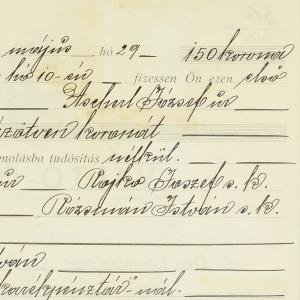 május hó 29 150 korona
hó 10-én fizessen Ön ezen első
Ascherl József úr
ezötven koronát
molásba tudósítás nélkül.
úr Rojko Jozsef s. k.
Rózsmán István s. k.
tván
karékpénztár"-nál.